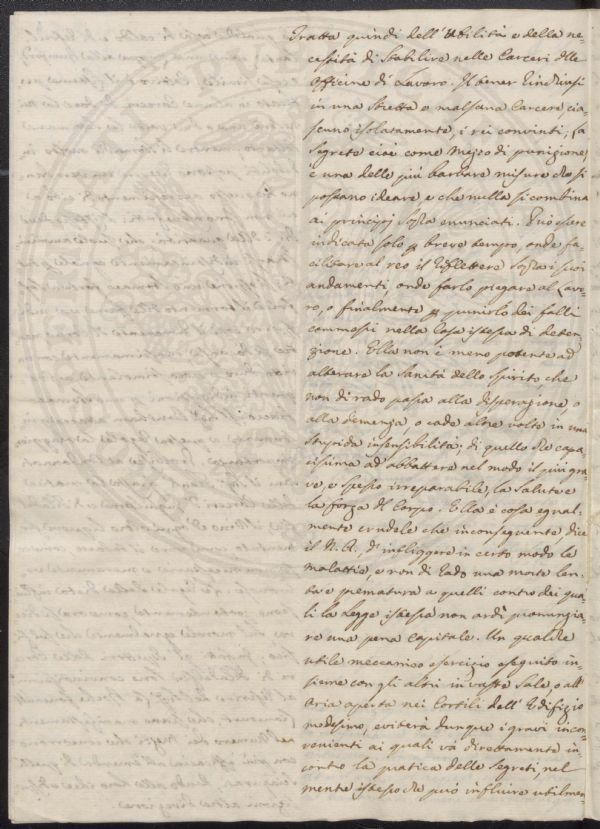 Tratta quindi dell'Utilità e della ne-
cessità di Stabilire nelle Carceri dlle
Officine di Lavoro. Il tener rinchiusi
in una Stretta o malsana Carcere, cia-
scuno isolatamente, i rei convinti, la
Segreta cioè come Mezzo di punizione,
è una delle più barbare misure che si
possano ideare, e che nulla si combina
ai principj sopra enunciati. Può essere
indicata solo p breve tempo, onde fa-
cilitare al reo il riflettere sopra i suoi
andamenti onde farlo piegare al Lavo-
ro, o finalmente p punirlo dei falli
commossi nella Casa istessa di deten-
zione. Ella non è meno potente ad
alterare la Sanità dello Spirito che
non di rado passa alla disperazione, o
alla demenza, o cade altre volte in una
Stupida insensibilità, di quello che capa-
cissima ad abbattere nel modo il più gra-
ve, e spesso irreparabile, la Salute e
la forza dl Corpo. Ella è cosa egual-
mente crudele che inconseguente dice
il N. A., d'infliggere in certo modo le
malattie, e non di rado una morte len-
ta e prematura a quelli contro dei qua-
li la Legge istessa non ardì pronunzia-
re una pena Capitale. Un qualche
utile meccanico esercizio eseguito in-
sieme con gli altri in vaste Sale, o all'
Aria aperta nei Cortili dell'Edifizio
medesimo, eviterà dunque i gravi incon-
venienti ai quali và direttamente in-
contro la pratica delle Segreti, nel
mentre istesso che può influire utilmen-